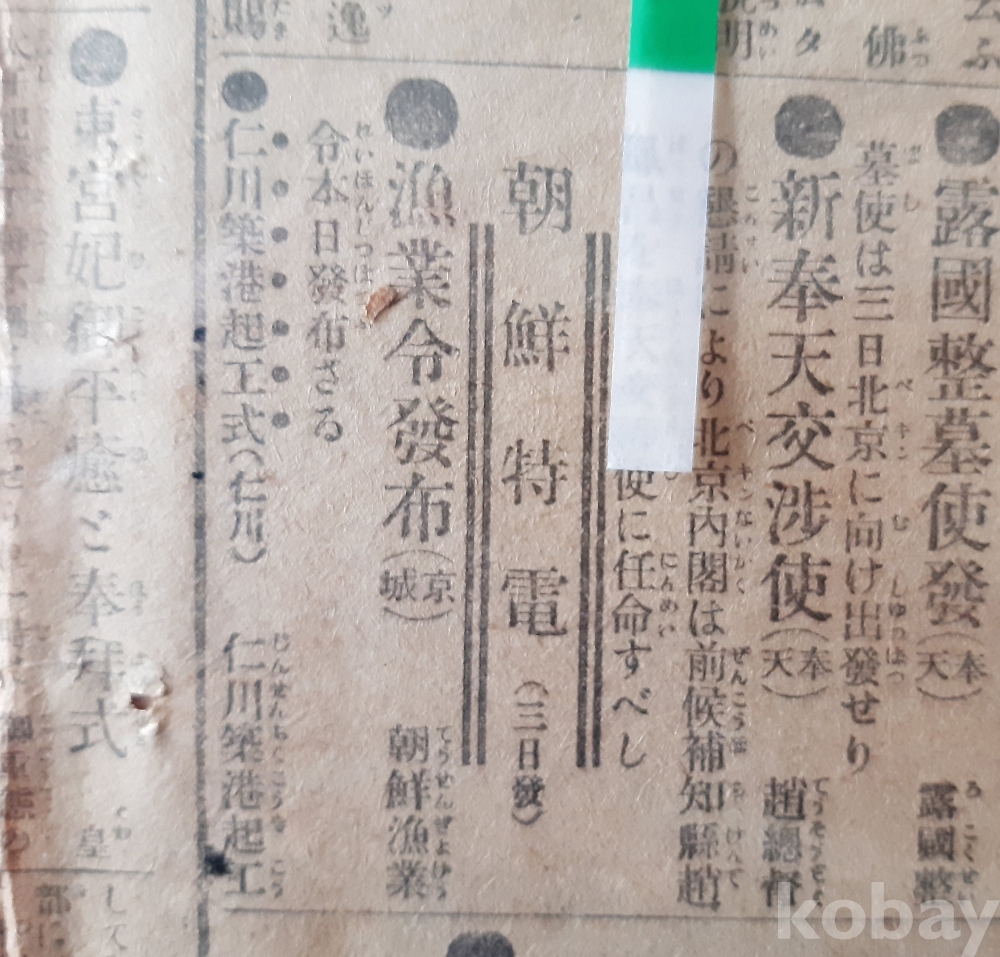 ●露國整墓使發（奉天） 露國整
墓使は三日北京に向け出發せり
●新奉天交渉使（奉天） 趙總督
の懇請により北京內閣は前候補知縣趙
使に任命すべし
朝鮮特電（三日發）
●漁業令發布（京城） 朝鮮漁業
令本日發布さる
●仁川築港起工式（仁川） 仁川築港起工
●東宮妃御平癒と奉拜式 皇
kobay